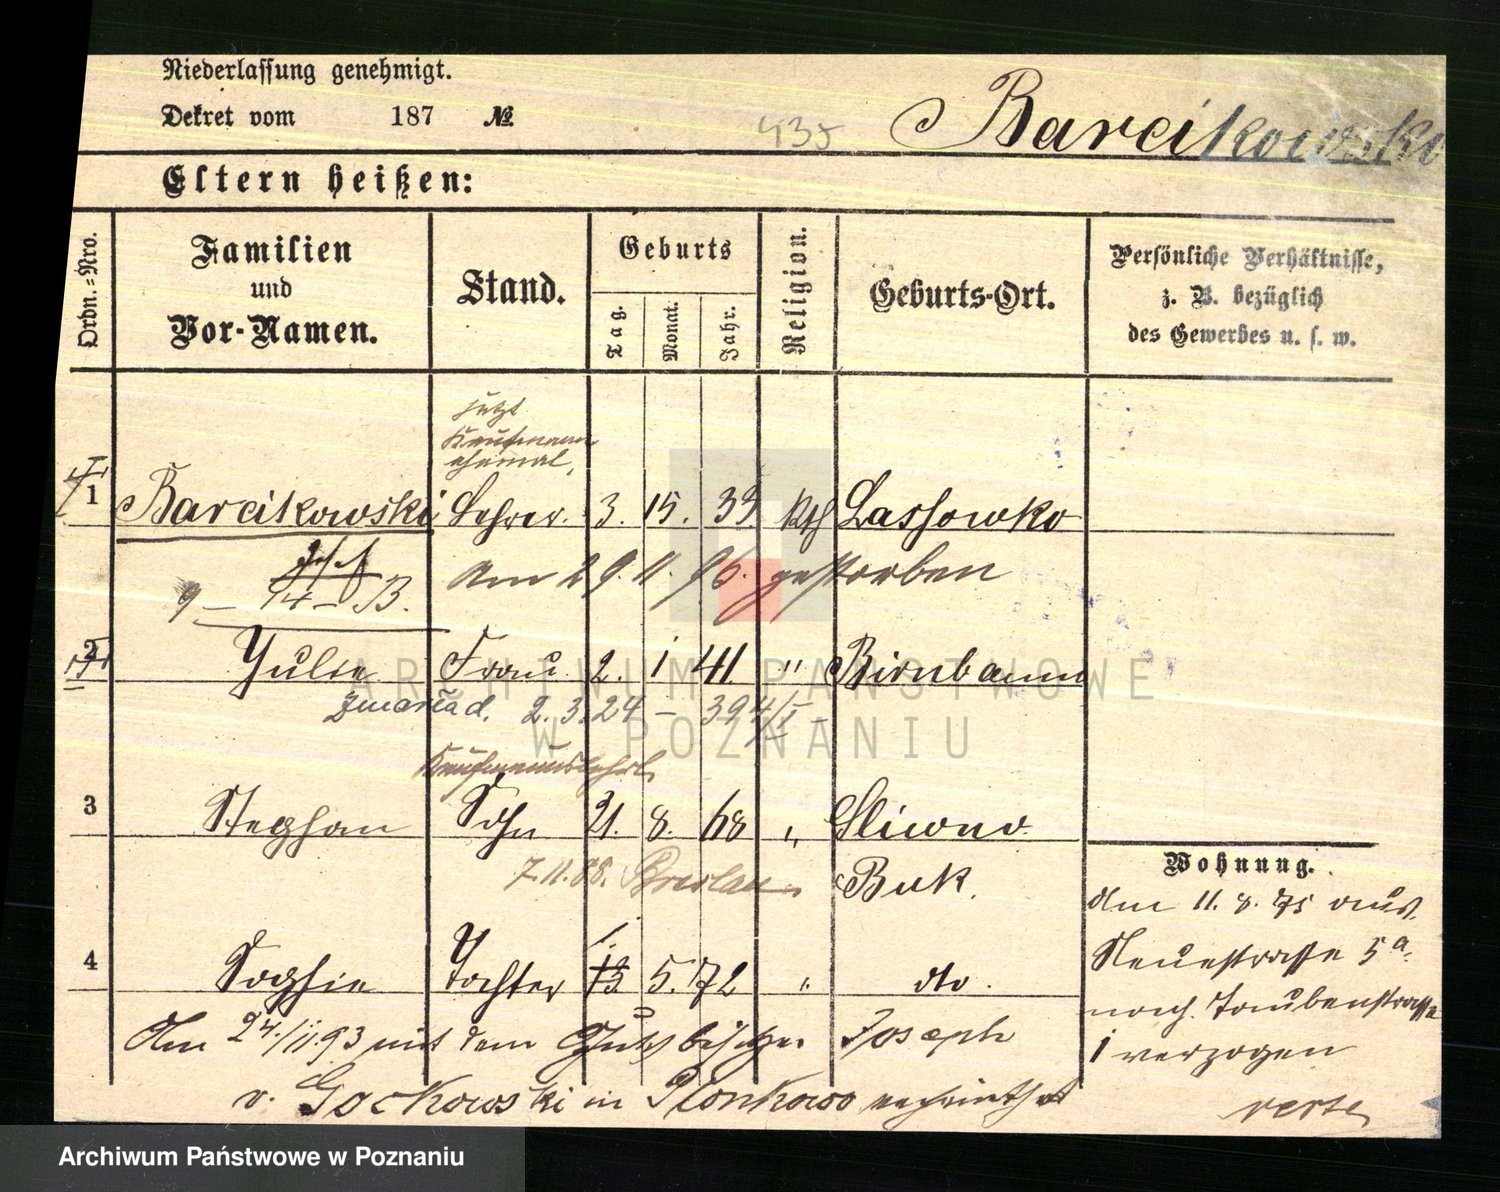 Niederlassung genehmigt.
Dekret vom 187 №
435
Barcikowski
Eltern heißen:
Ordn.-Nro.
Familien und Vor-Namen.
Stand.
Geburts
Tag.
Monat.
Jahr.
Religion.
Geburts-Ort.
Persönliche Verhältnisse,
z. B. bezüglich
des Gewerbes u. s. w.
jetzt
Kaufmann
ehemal.
1 Barcikowski Lehrer. 3. 15. 39 kth Lassowko
Am 29. 11. 96. gestorben
2 Julie Frau 2. 1 41 " Birnbaum
2.3.24 – 394/I –
Kaufmannslehrl.
3 Stephan Sohn 21. 8. 68 " Sliwno
7.11.88. Breslau Buk.
4 Sophie Tochter 5. 72 " dto.
Am 24./11.93 mit dem Gutsbesitzer Joseph
v. Gockowski in Plonkowo verheirathet
Wohnung.
Am 11. 8. 75 aus
Neuestrasse 5a.
nach Taubenstrasse
1 verzogen
verte
ARCHIWUM PAŃSTWOWE
W POZNANIU
Archiwum Państwowe w Poznaniu